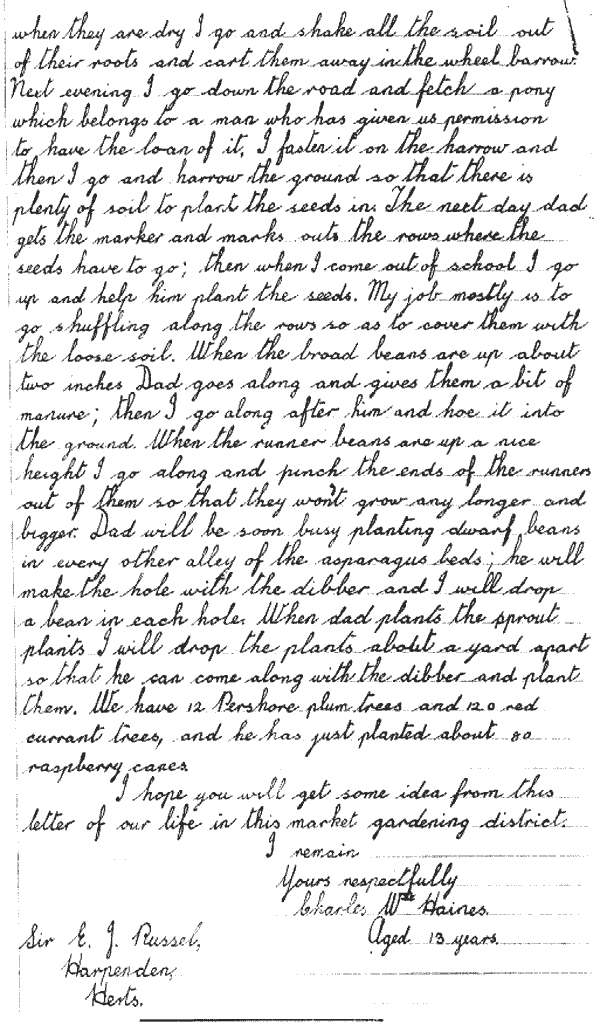 when they are dry I go and shake all the soil out
of their roots and cart them away in the wheel barrow.
Next evening I go down the road and fetch a pony
which belongs to a man who has given us permission
to have the loan of it, I fasten it on the harrow and
then I go and harrow the ground so that there is
plenty of soil to plant the seeds in. The next day dad
gets the marker and marks outs the rows where the
seeds have to go; then when I come out of school I go
up and help him plant the seeds. My job mostly is to
go shuffling along the rows so as to cover them with
the loose soil. When the broad beans are up about
two inches Dad goes along and gives them a bit of
manure; then I go along after him and hoe it into
the ground. When the runner beans are up a nice
height I go along and pinch the ends of the runners
out of them so that they won't grow any longer and
bigger. Dad will be soon busy planting dwarf beans
in every other alley of the asparagus beds; he will
make the hole with the dibber and I will drop
a bean in each hole. When dad plants the sprout
plants I will drop the plants about a yard apart
so that he can come along with the dibber and plant
them. We have 12 Pershore plum trees and 120 red
currant trees, and he has just planted about 80
raspberry canes.
I hope you will get some idea from this
letter of our life in this market gardening district.
I remain
Yours respectfully
Charles Wm Haines.
Aged 13 years.
Sir E. J. Russel,
Harpenden,
Herts.